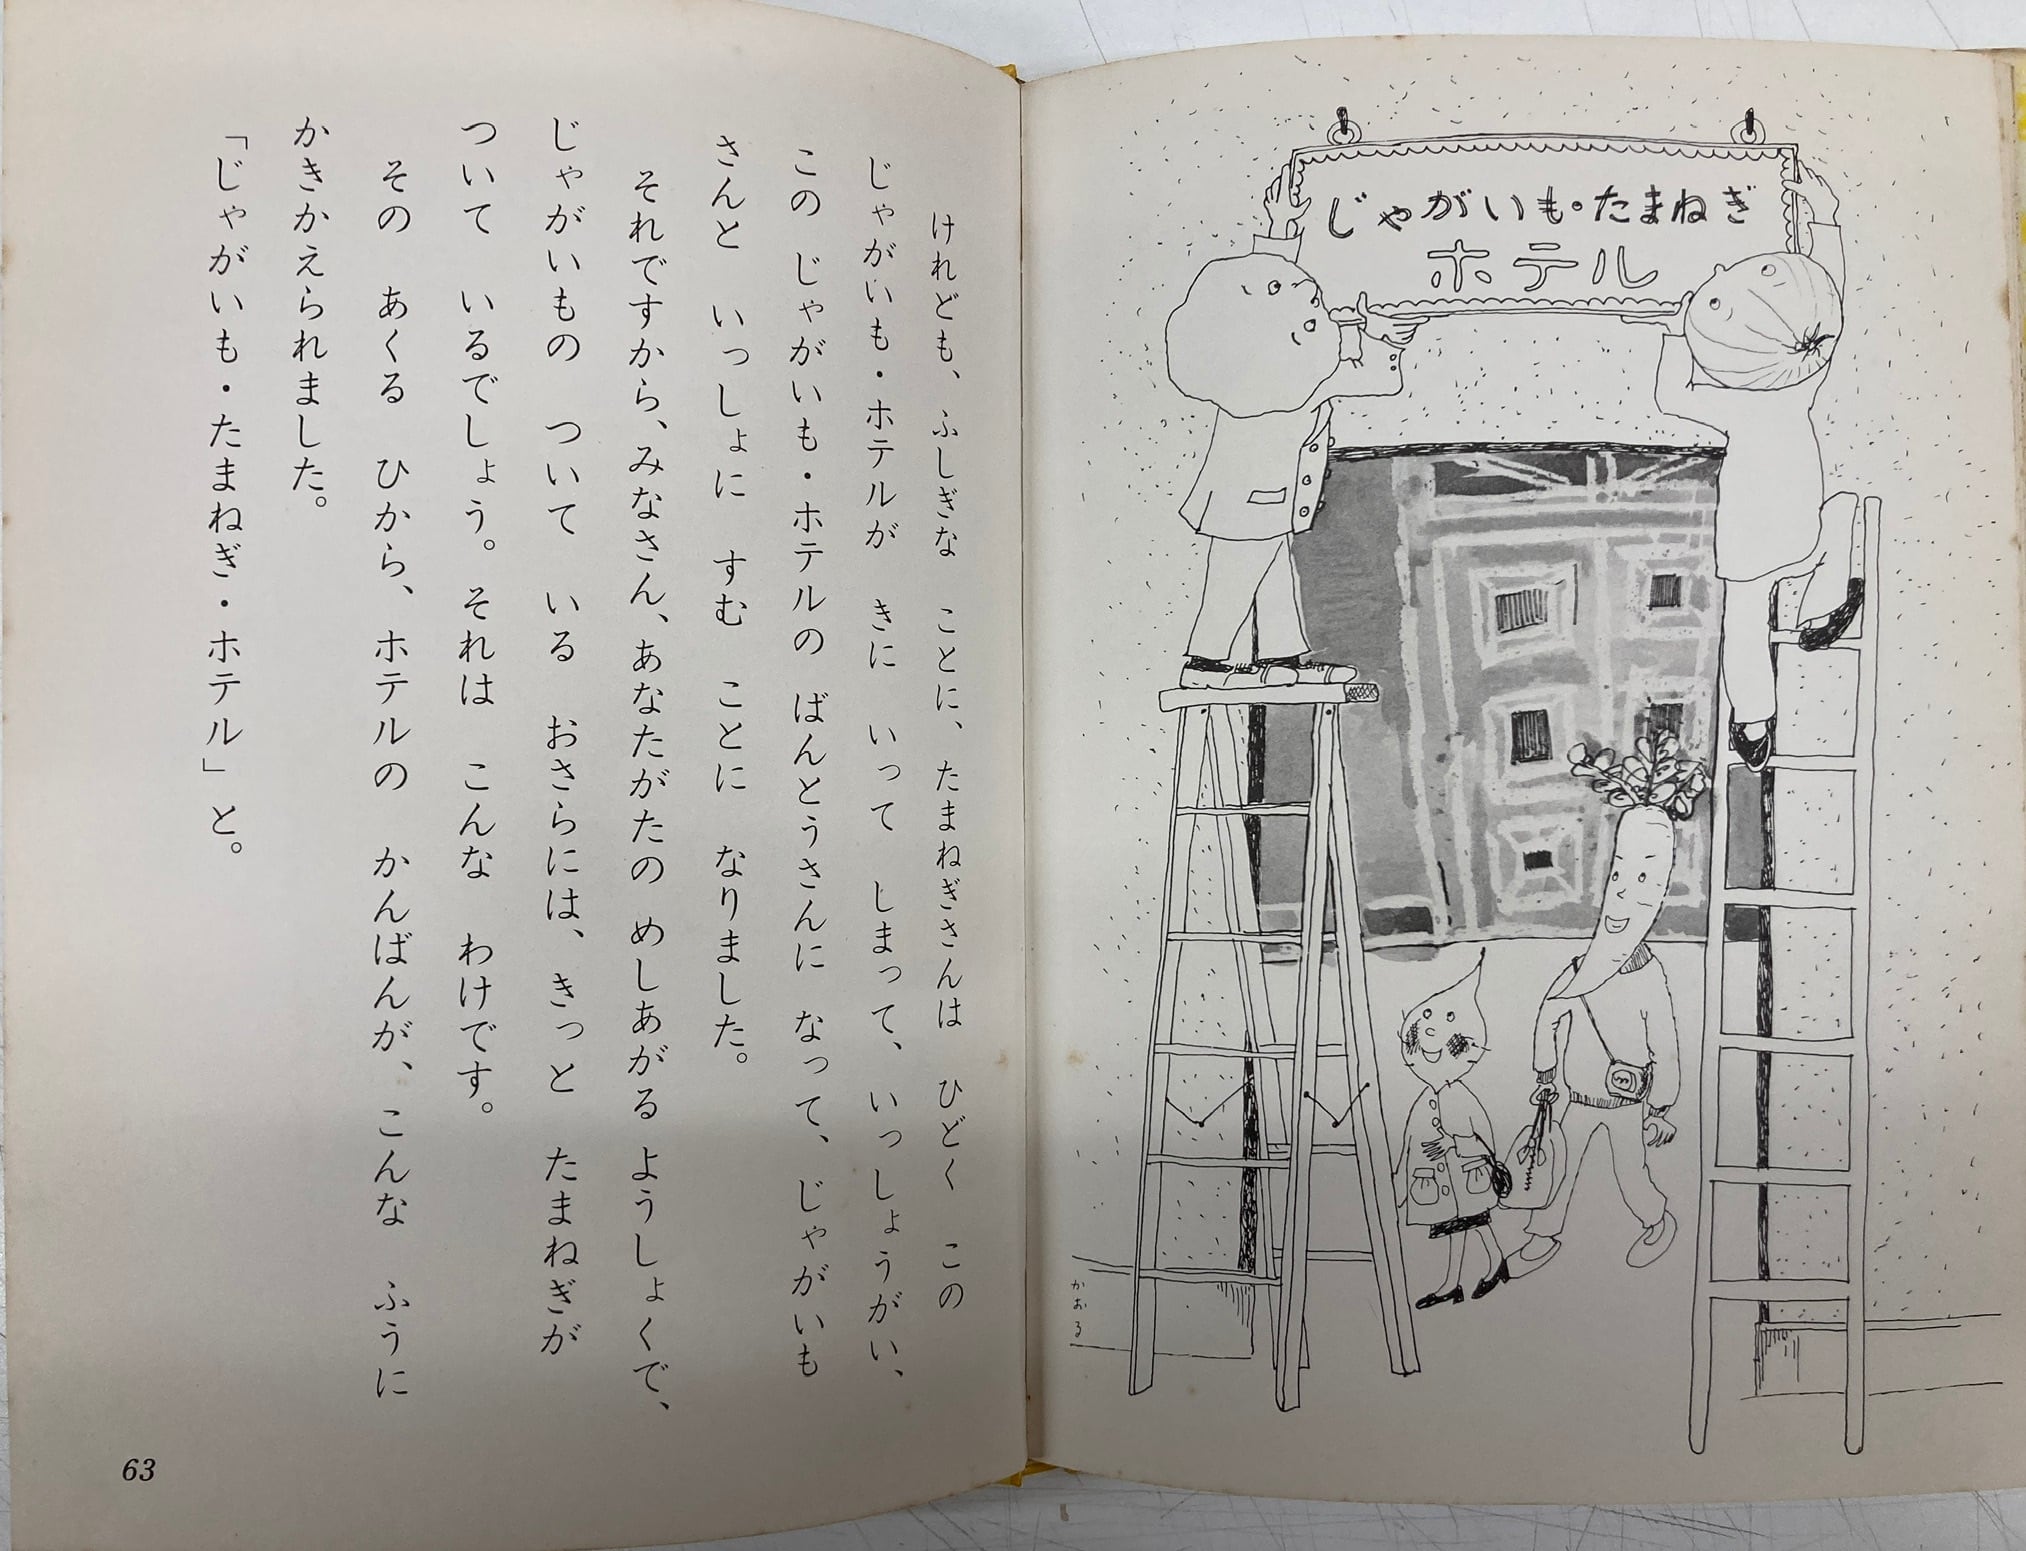 じゃがいも・たまねぎ
ホテル
かおる
けれども、ふしぎな ことに、たまねぎさんは ひどく この
じゃがいも・ホテルが きに いって しまって、いっしょうがい、
この じゃがいも・ホテルの ばんとうさんに なって、じゃがいも
さんと いっしょに すむ ことに なりました。
それですから、みなさん、あなたがたの めしあがる ようしょくで、
じゃがいもの ついて いる おさらには、きっと たまねぎが
ついて いるでしょう。それは こんな わけです。
その あくる ひから、ホテルの かんばんが、こんな ふうに
かきかえられました。
「じゃがいも・たまねぎ・ホテル」と。
63